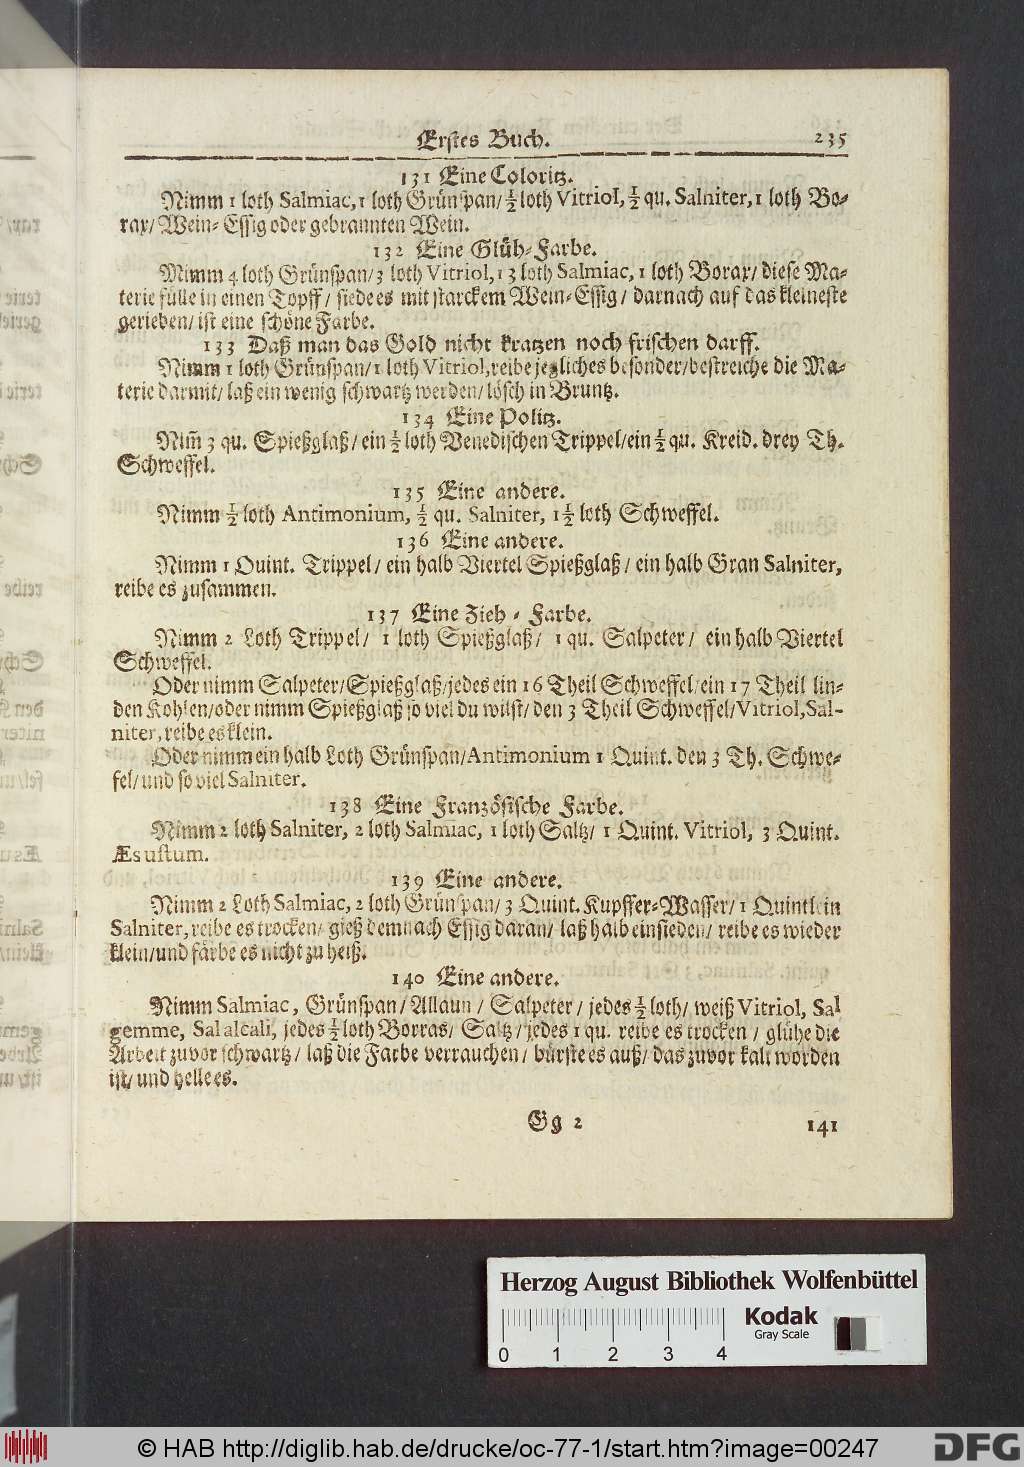 Erstes Buch. 235
131 Eine Coloritz.
Nimm 1 loth Salmiac, 1 loth Grünspan/ ½ loth Vitriol, ½ qu. Salniter, 1 loth Bo-
rax/ Wein-Essig oder gebrannten Wein.
132 Eine Glüh-Farbe.
Nimm 4 loth Grünspan/ 3 loth Vitriol, 13 loth Salmiac, 1 loth Borax/ diese Ma-
terie fülle in einen Topff/ siede es mit starckem Wein-Essig/ darnach auf das kleineste
gerieben/ ist eine schöne Farbe.
133 Daß man das Gold nicht kratzen noch frischen darff.
Nimm 1 loth Grünspan/ 1 loth Vitriol, reibe jegliches besonder/ bestreiche die Ma-
terie darmit/ laß ein wenig schwartz werden/ lösch in Bruntz.
134 Eine Politz.
Nim̃ 3 qu. Spießglaß/ ein ½ loth Venedischen Trippel/ ein ½ qu. Kreid. drey Th.
Schweffel.
135 Eine andere.
Nimm ½ loth Antimonium, ½ qu. Salniter, 1½ loth Schweffel.
136 Eine andere.
Nimm 1 Quint. Trippel/ ein halb Viertel Spießglaß/ ein halb Gran Salniter,
reibe es zusammen.
137 Eine Zieh-Farbe.
Nimm 2 Loth Trippel/ 1 loth Spießglaß/ 1 qu. Salpeter/ ein halb Viertel
Schweffel.
Oder nimm Salpeter/ Spießglaß/ jedes ein 16 Theil Schweffel/ ein 17 Theil lin-
den Kohlen/ oder nimm Spießglaß so viel du wilst/ den 3 Theil Schweffel/ Vitriol, Sal-
niter, reibe es klein.
Oder nimm ein halb Loth Grünspan/ Antimonium 1 Quint. den 3 Th. Schwe-
fel/ und so viel Salniter.
138 Eine Französische Farbe.
Nimm 2 loth Salniter, 2 loth Salmiac, 1 loth Saltz/ 1 Quint. Vitriol, 3 Quint.
Æs ustum.
139 Eine andere.
Nimm 2 Loth Salmiac, 2 loth Grünspan/ 3 Quint. Kupffer-Wasser/ 1 Quintlein
Salniter, reibe es trocken/ gieß demnach Essig daran/ laß halb einsieden/ reibe es wieder
klein/ und färbe es nicht zu heiß.
140 Eine andere.
Nimm Salmiac, Grünspan/ Allaun/ Salpeter/ jedes ½ loth/ weiß Vitriol, Sal
gemme, Sal alcali, jedes ½ loth Borras/ Saltz/ jedes 1 qu. reibe es trocken/ glühe die
Arbeit zuvor schwartz/ laß die Farbe verrauchen/ bürste es auß/ das zuvor kalt worden
ist/ und helle es.
Gg 2 141
Herzog August Bibliothek Wolfenbüttel
Kodak
Gray Scale
0 1 2 3 4
© HAB http://diglib.hab.de/drucke/oc-77-1/start.htm?image=00247
DFG